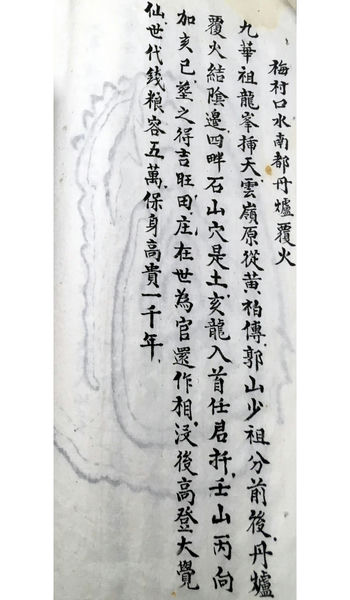 梅村口水南都丹爐覆火
九華祖龍峯挿天雲嶺原從黃柏傳郭山少祖分前後丹爐
覆火結陰邊四畔石山穴是土亥龍入首任君扦壬山丙向
加亥巳塟之得吉旺田庄在世為官還作相没後高登大覺
仙世代錢粮容五萬保身高貴一千年